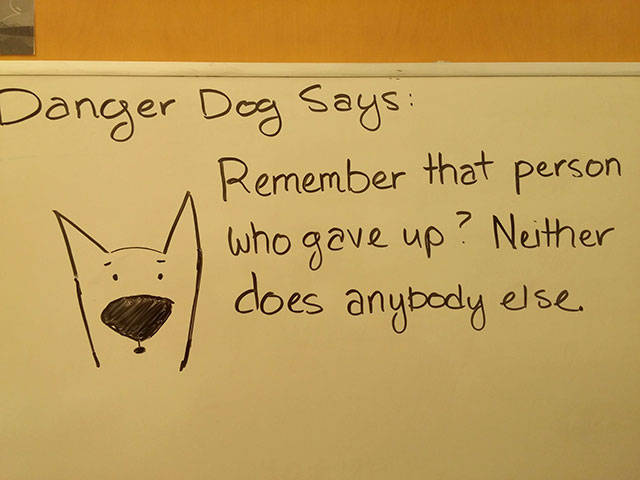 Danger Dog Says:
Remember that person
who gave up? Neither
does anybody else.